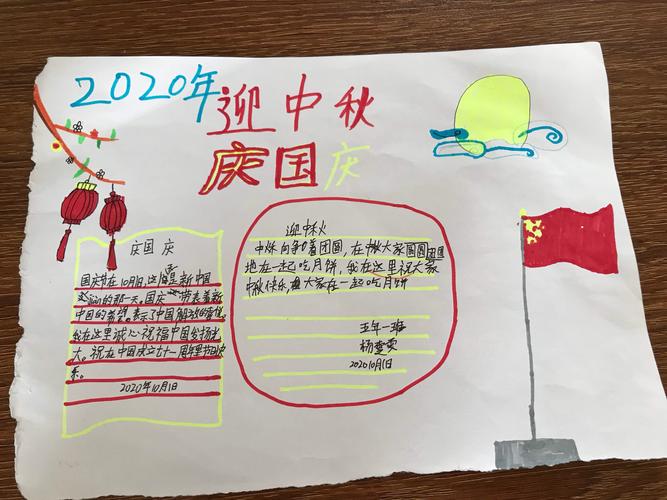 2020年
迎中秋
庆国庆
庆国庆
国庆节在10月1日这是新中国
的那一天。国庆 带表着新
中国的希望。表示了中国解放的
我在这里诚心祝福中国发扬光
大。祝在中国成立七十一周年里节日快
乐。
2020年10月1日
迎中秋
中秋向争着团圆，在中秋大家团圆
地在一起吃月饼，我在这里祝大家
中秋快乐，大家在一起吃月饼
五年一班
杨
2020 10月1日